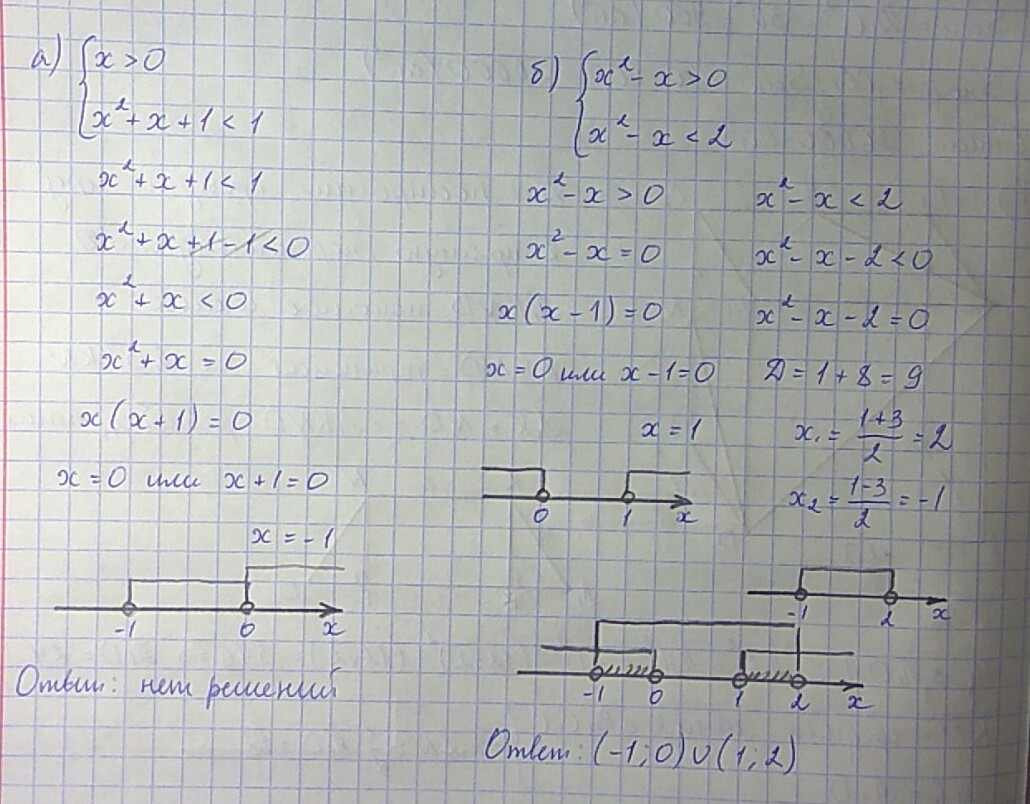 а) { x > 0
x² + x + 1 < 1
x² + x + 1 < 1
x² + x + 1 - 1 < 0
x² + x < 0
x² + x = 0
x(x + 1) = 0
x = 0 или x + 1 = 0
x = -1
-1 0 x
Ответ: нет решений
б) { x² - x > 0
x² - x < 2
x² - x > 0
x² - x = 0
x(x - 1) = 0
x = 0 или x - 1 = 0
x = 1
0 1 x
x² - x < 2
x² - x - 2 < 0
x² - x - 2 = 0
D = 1 + 8 = 9
x₁ = (1+3)/2 = 2
x₂ = (1-3)/2 = -1
-1 2 x
-1 0 1 2 x
Ответ: (-1; 0) ∪ (1; 2)